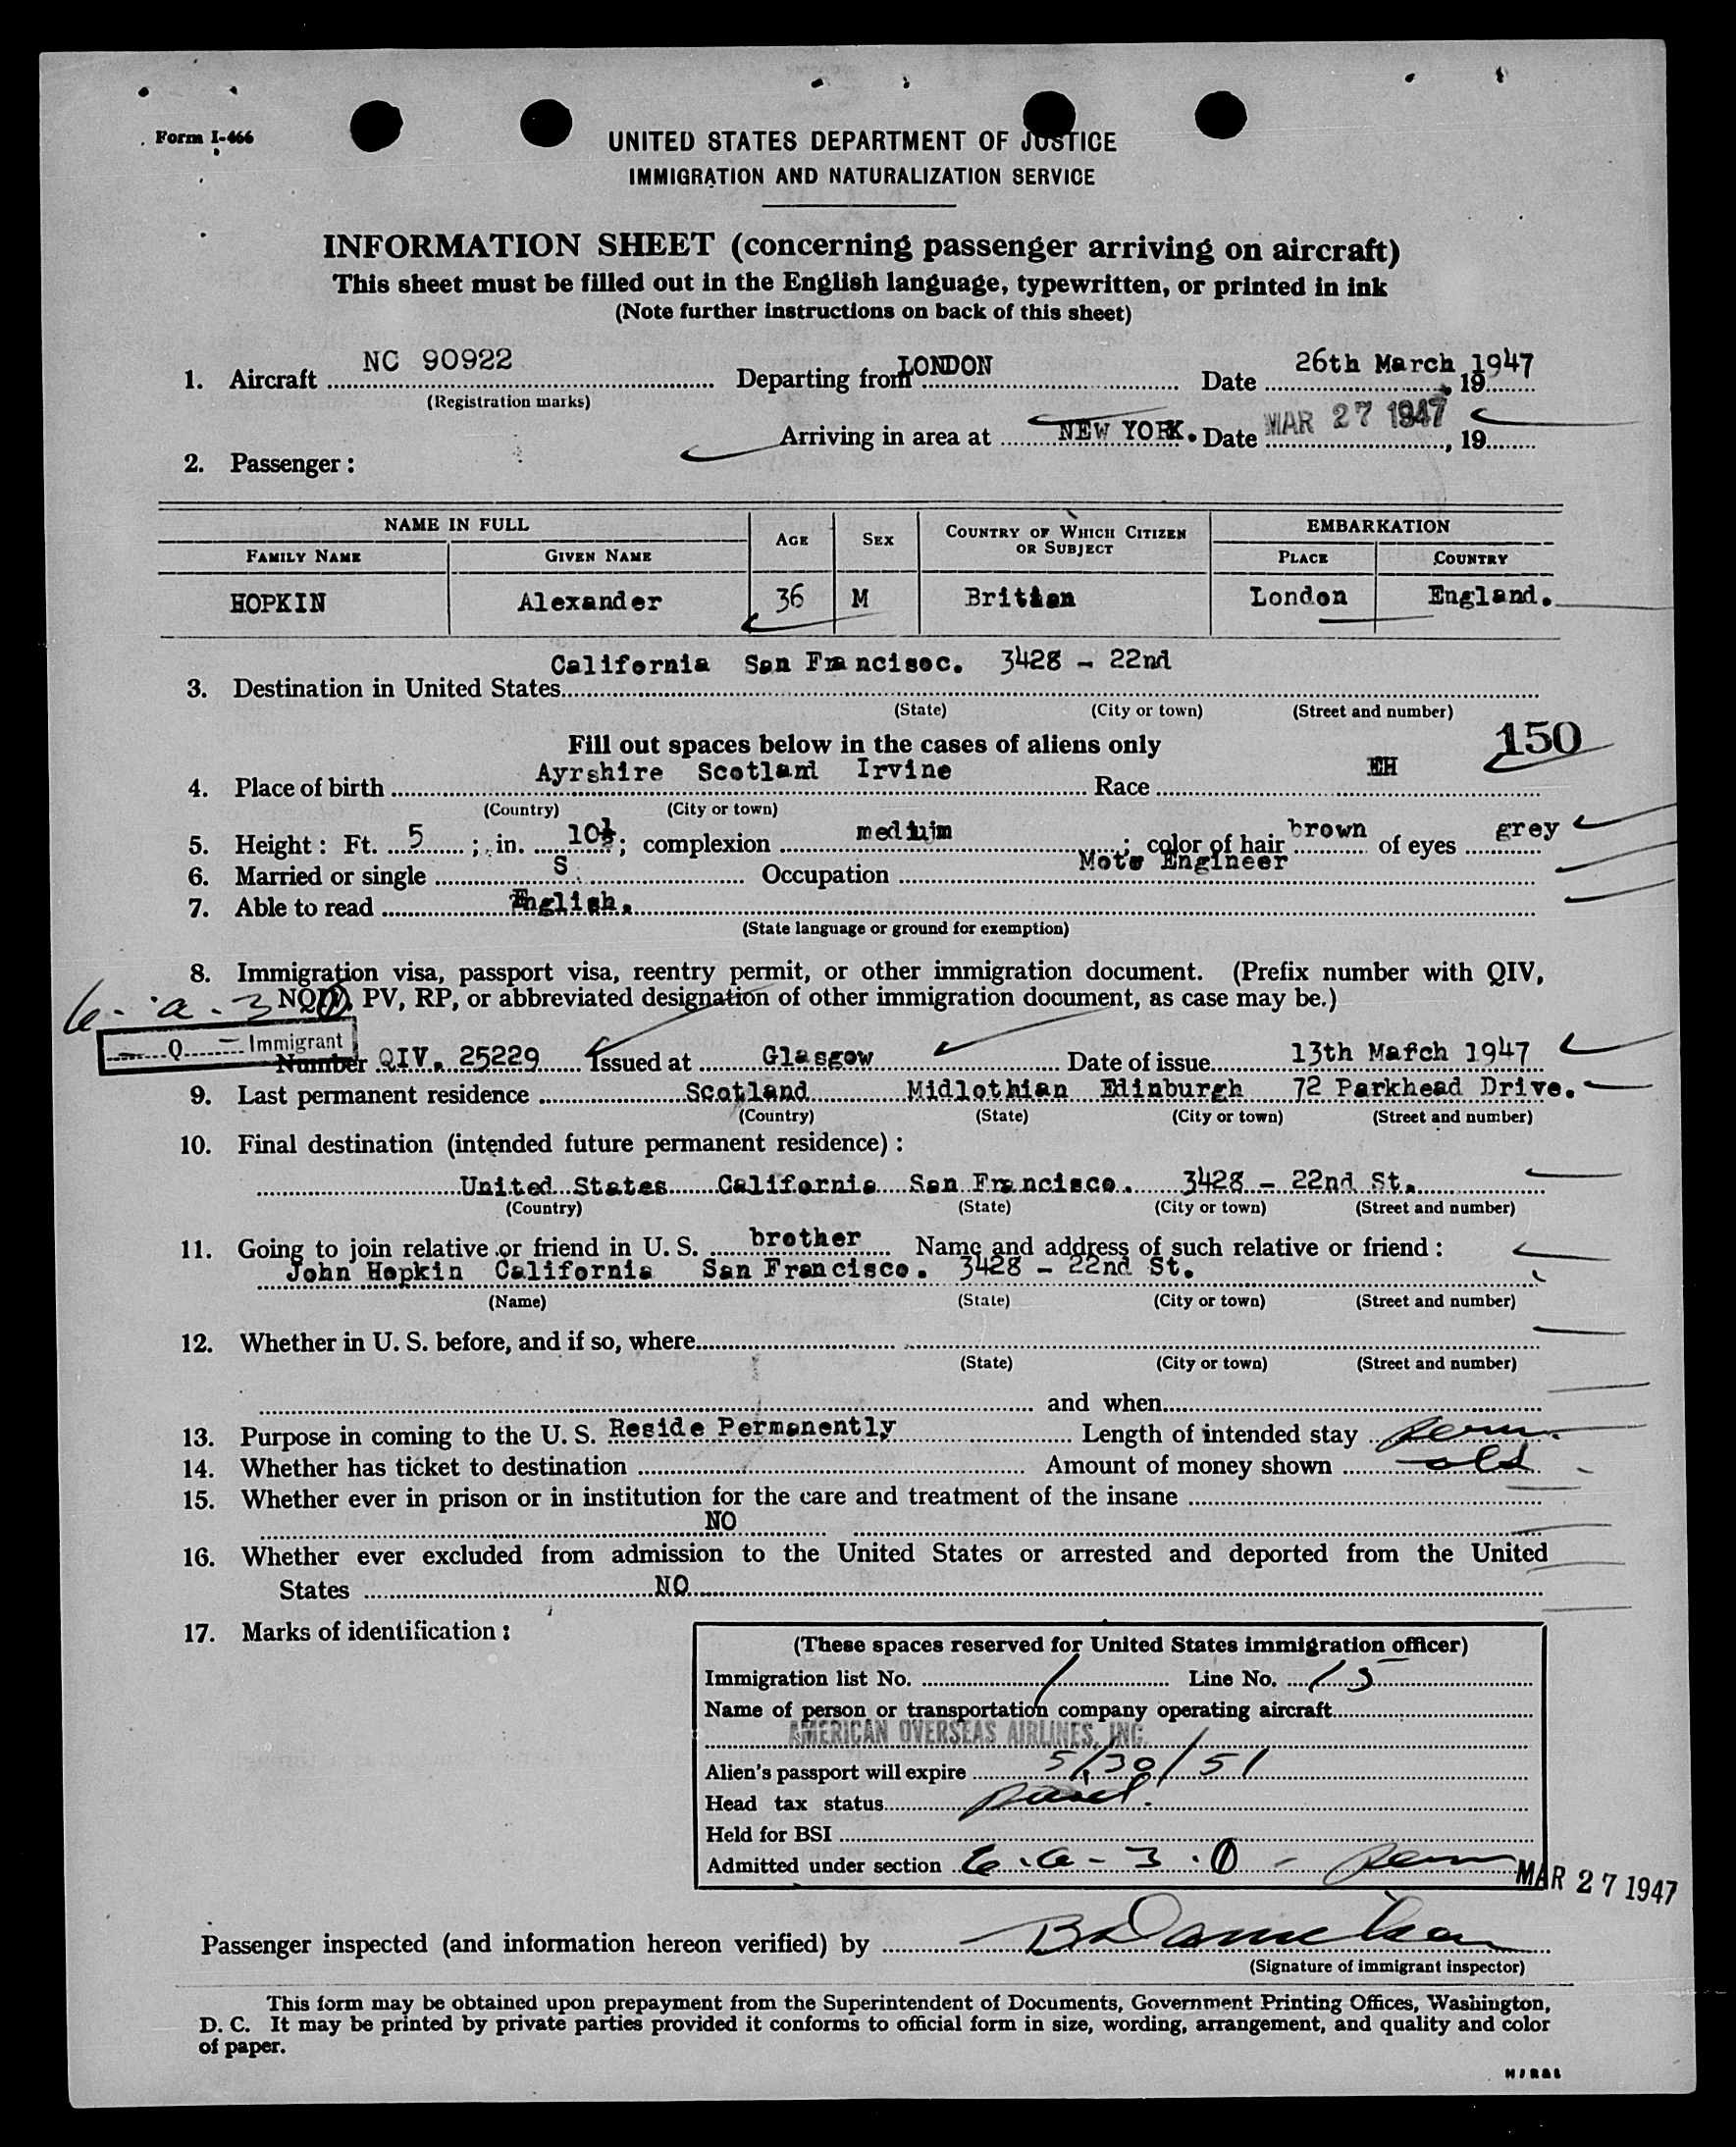 Form I-466
UNITED STATES DEPARTMENT OF JUSTICE
IMMIGRATION AND NATURALIZATION SERVICE
INFORMATION SHEET (concerning passenger arriving on aircraft)
This sheet must be filled out in the English language, typewritten, or printed in ink
(Note further instructions on back of this sheet)
1. Aircraft NC 90922 Departing from LONDON Date 26th March, 1947
(Registration marks)
Arriving in area at NEW YORK. Date MAR 27 1947, 19
2. Passenger:
NAME IN FULL AGE SEX COUNTRY OF WHICH CITIZEN OR SUBJECT EMBARKATION
FAMILY NAME GIVEN NAME PLACE COUNTRY
HOPKIN Alexander 36 M Britian London England.
3. Destination in United States California San Francisoc. 3428 - 22nd
(State) (City or town) (Street and number)
150
Fill out spaces below in the cases of aliens only
4. Place of birth Ayrshire Scotland Irvine Race
(Country) (City or town)
5. Height: Ft. 5; in. 10½; complexion medium; color of hair brown of eyes grey
6. Married or single S Occupation Motor Engineer
7. Able to read English.
(State language or ground for exemption)
8. Immigration visa, passport visa, reentry permit, or other immigration document. (Prefix number with QIV,
6-a-3 NQIV, PV, RP, or abbreviated designation of other immigration document, as case may be.)
Q - Immigrant
Number QIV. 25229 Issued at Glasgow Date of issue 13th Mafch 1947
9. Last permanent residence Scotland Midlothian Edinburgh 72 Parkhead Drive.
(Country) (State) (City or town) (Street and number)
10. Final destination (intended future permanent residence):
United States California San Francisco. 3428 - 22nd St.
(Country) (State) (City or town) (Street and number)
11. Going to join relative or friend in U. S. brother Name and address of such relative or friend:
John Hopkin California San Francisco. 3428 - 22nd St.
(Name) (State) (City or town) (Street and number)
12. Whether in U. S. before, and if so, where
(State) (City or town) (Street and number)
and when
13. Purpose in coming to the U. S. Reside Permanently Length of intended stay Perm.
14. Whether has ticket to destination Amount of money shown
15. Whether ever in prison or in institution for the care and treatment of the insane
NO
16. Whether ever excluded from admission to the United States or arrested and deported from the United
States NO
17. Marks of identification:
(These spaces reserved for United States immigration officer)
Immigration list No. 1 Line No. 15
Name of person or transportation company operating aircraft
AMERICAN OVERSEAS AIRLINES, INC.
Alien's passport will expire 5/30/51
Head tax status paid.
Held for BSI
Admitted under section 6-a-3.(1) - Perm
MAR 27 1947
Passenger inspected (and information hereon verified) by
(Signature of immigrant inspector)
This form may be obtained upon prepayment from the Superintendent of Documents, Government Printing Offices, Washington,
D. C. It may be printed by private parties provided it conforms to official form in size, wording, arrangement, and quality and color
of paper.